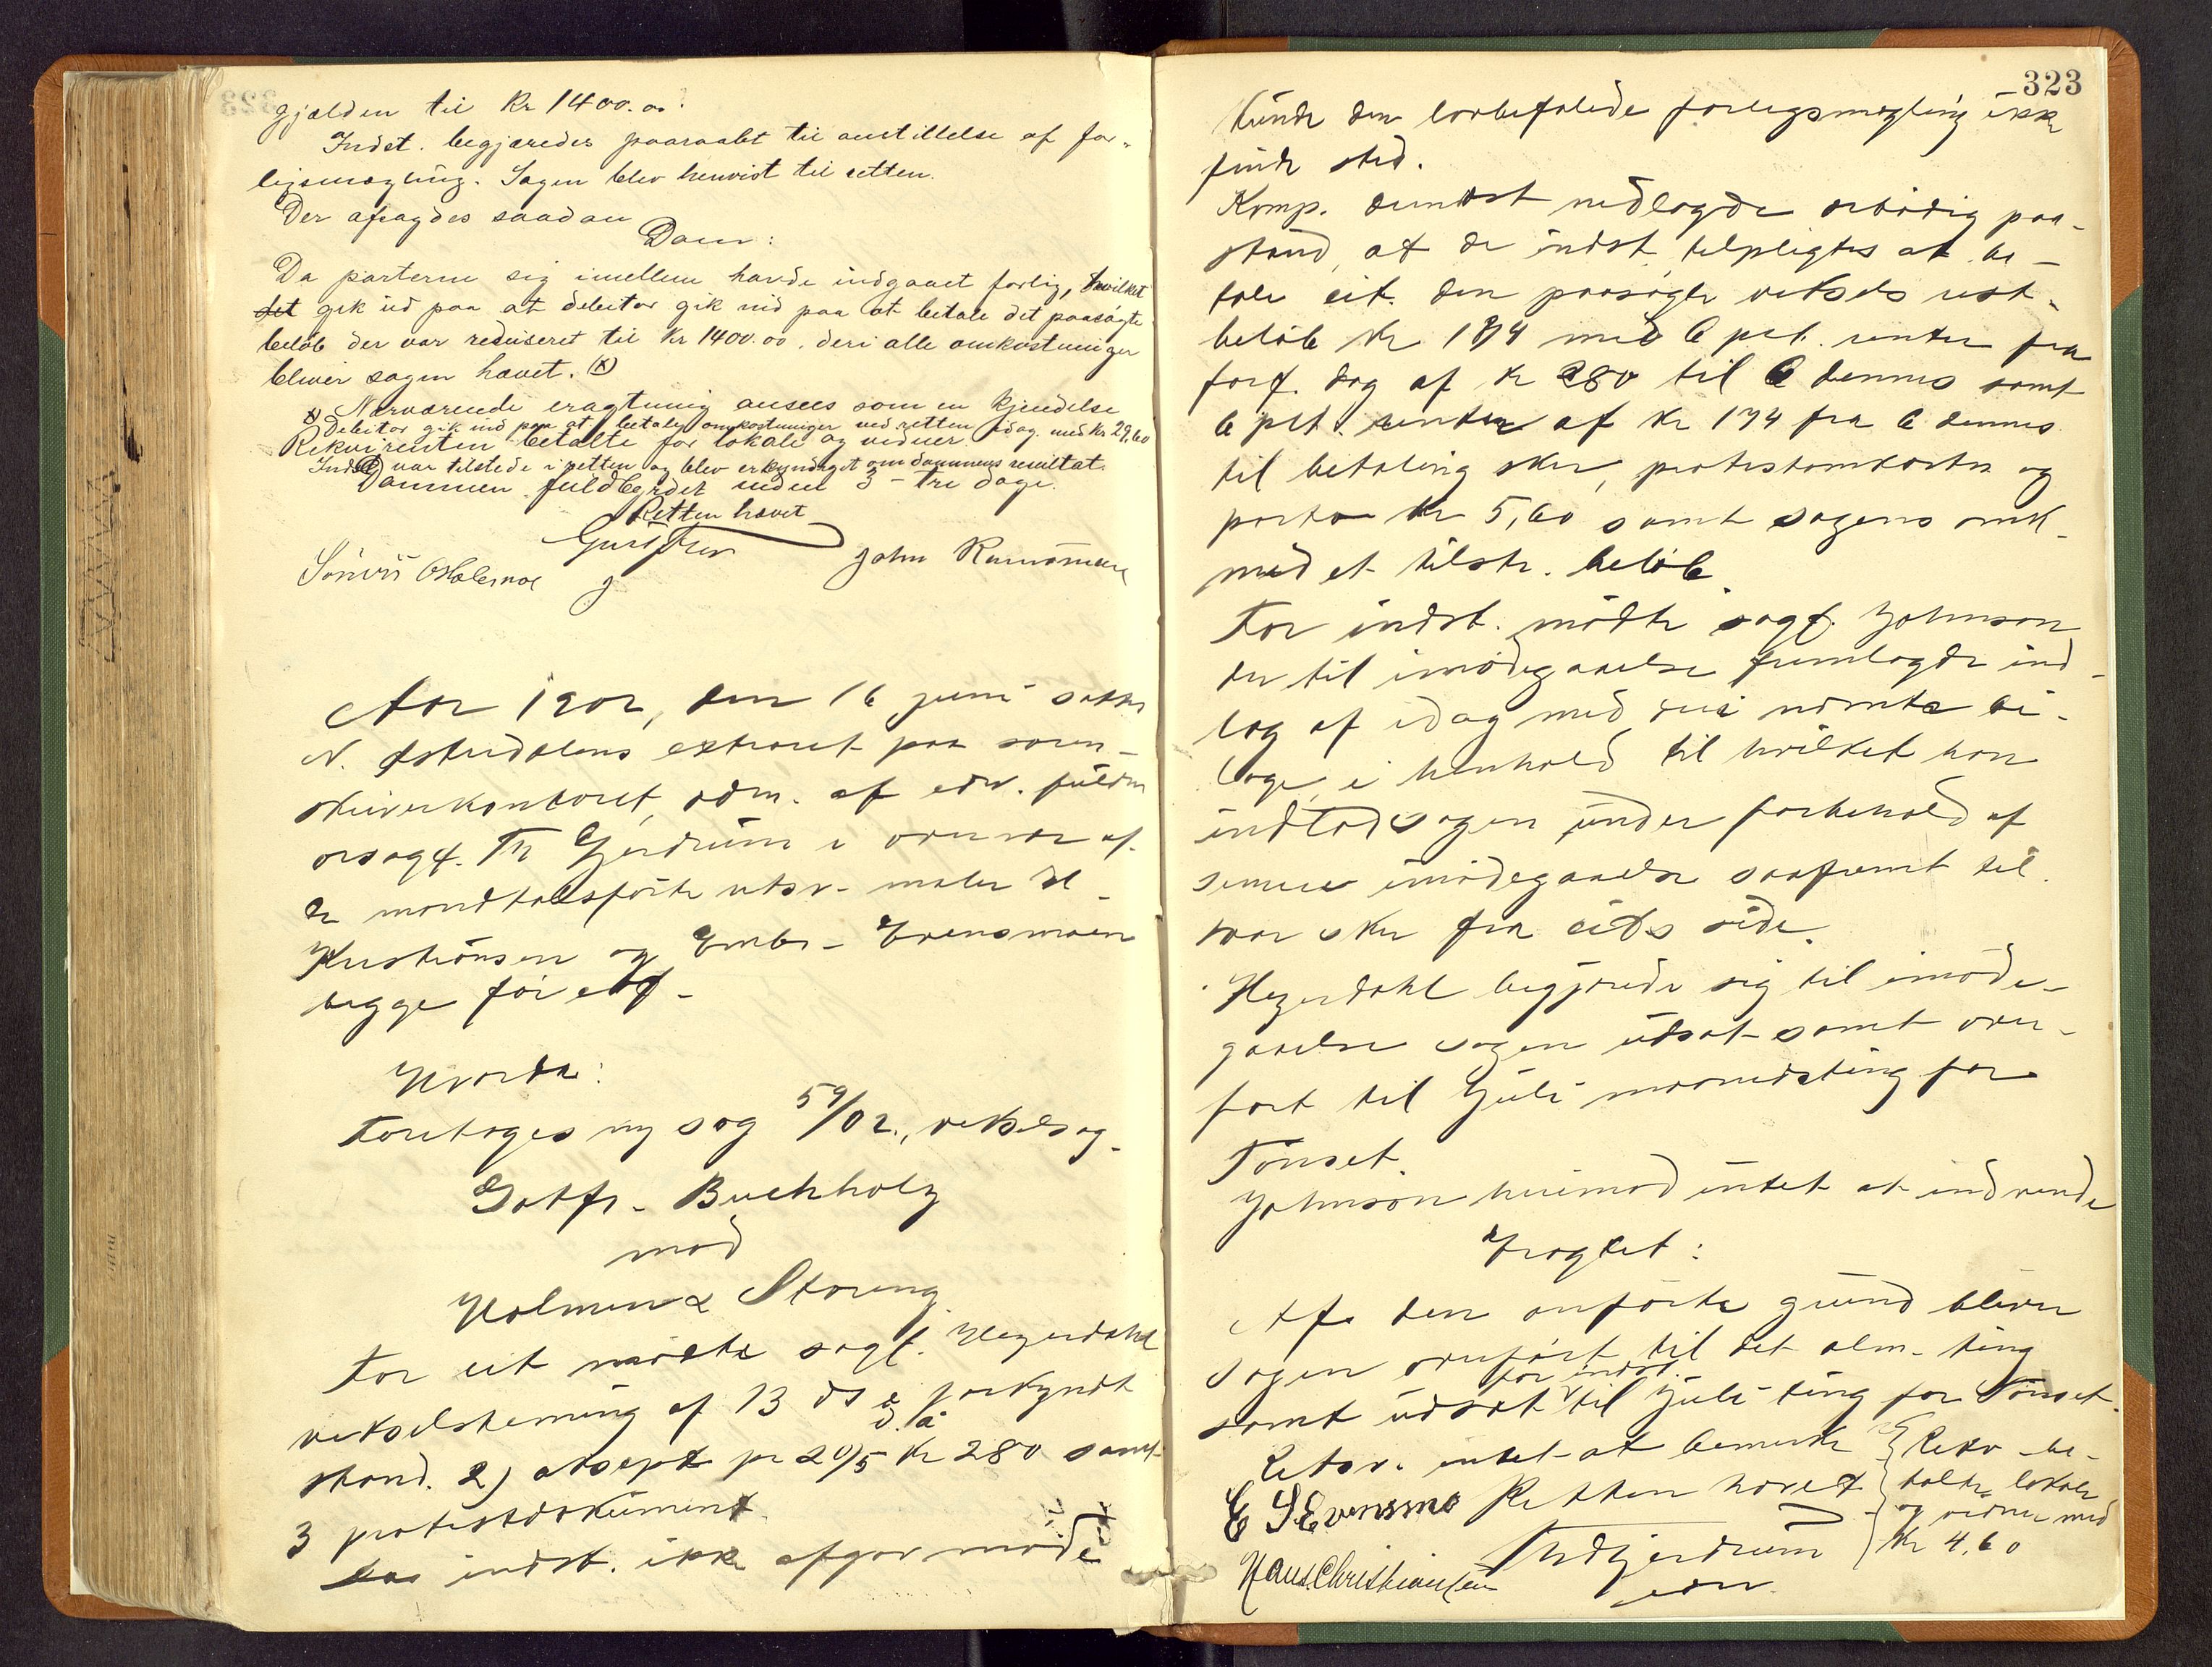 gjælden til Kr 1400.00.
Indst. begjæredes paaraabt til anstillelse af for-
ligsmægling. Sagen blev henvist til retten.
Der afsagdes saadan
Dom:
Da parterne sig imellem havde indgaaet forlig, hvilket
det gik ud paa at debitor gik ind paa at betale det paasøgte
beløb der var reduseret til Kr 1400.00, deri alle omkostninger
bliver sagen hævet. (x)
Nærværende eragtning ansees som en kjendelse
x) Debitor gik ind paa at betale omkostninger ved retten idag med Kr 29,60
Rekvirenten betalte for lokale og vidner
Indst var tilstede i retten og blev erkyndiget om dommens resultat.
Dommen fuldbyrdet inden 3 - tre dage.
Retten hævet
John
Aar 1902, den 16 juni sattes
N. Østerdalens extraret paa soren-
skriverkontoret, adm. af edsv. fuldm
orsagf. Th Gjerdrum i overvær af
de mandtalsførte retsv. maler H
Kristiansen og Embr. Evensmoen
begge før edf.
Hvorda:
Foretoges ny sag 59/02, vekselsag
Gotfr. Buchholz
mod
Holmen & Støreng
For cit mødte sagf. Heyerdahl
vekselstevning af 13 ds forkyndt
3 protestdokument
Da indst. ikke afgav møde
323
kunde den lovbefalede forligsmægling ikke
finde sted.
Komp. dernæst nedlagde ærbødig paa-
stand, at de indst. tilpligtes at be-
tale cit. den paasøgte veksels rest-
beløb Kr 174 med 6 pct. renter fra
forf. dag af Kr 280 til 6 dennes samt
6 pct. renter af Kr 174 fra 6 dennes
til betaling sker, protestomkoster og
porto Kr 5,60 samt sagens omk.
med et tilstr. beløb.
For indst. mødte sagf. Johnson
der til imødegaaelse fremlagde ind-
læg af idag med deri nævnte bi-
lage, i henhold til hvilket han
indlod sagen under forbehold af
senere imødegaaelse saafremt til-
svar sker fra cits side.
Heyerdahl begjærede sig til imøde-
gaaelse sagen udsat samt over-
ført til Juli maanedsting for
Tønset.
Johnson herimod intet at indvende
Eragtet:
Af den anførte grund bliver
sagen overført til det alm. ting
for indst.
samt udsat til Juli ting for Tønset.
Retsv. intet at bemerke
Retten hævet
Rekv be-
talte lokale
og vidner med
Kr 4,60
E S Evensmo
Th Gjerdrum
edsv.
Hans Christiansen